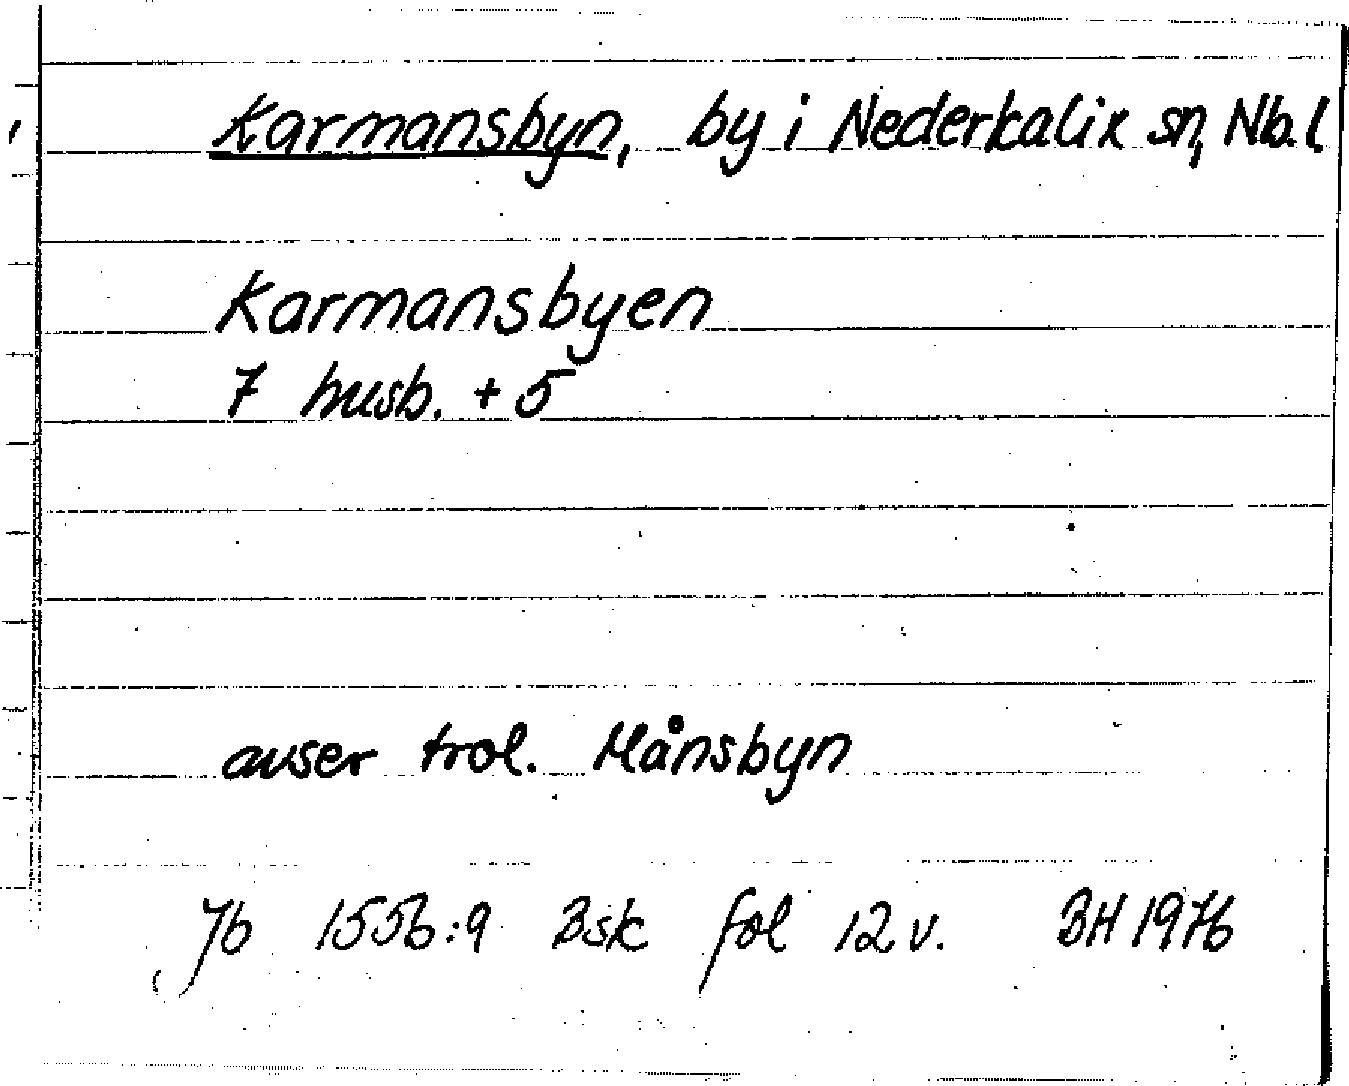 Karmansbyn, by i Nederkalix sn, Nb. l
Karmansbyen
7 husb. + 5
avser trol. Månsbyn
Jb 1556:9 Bsk fol 12 v. BH 1976